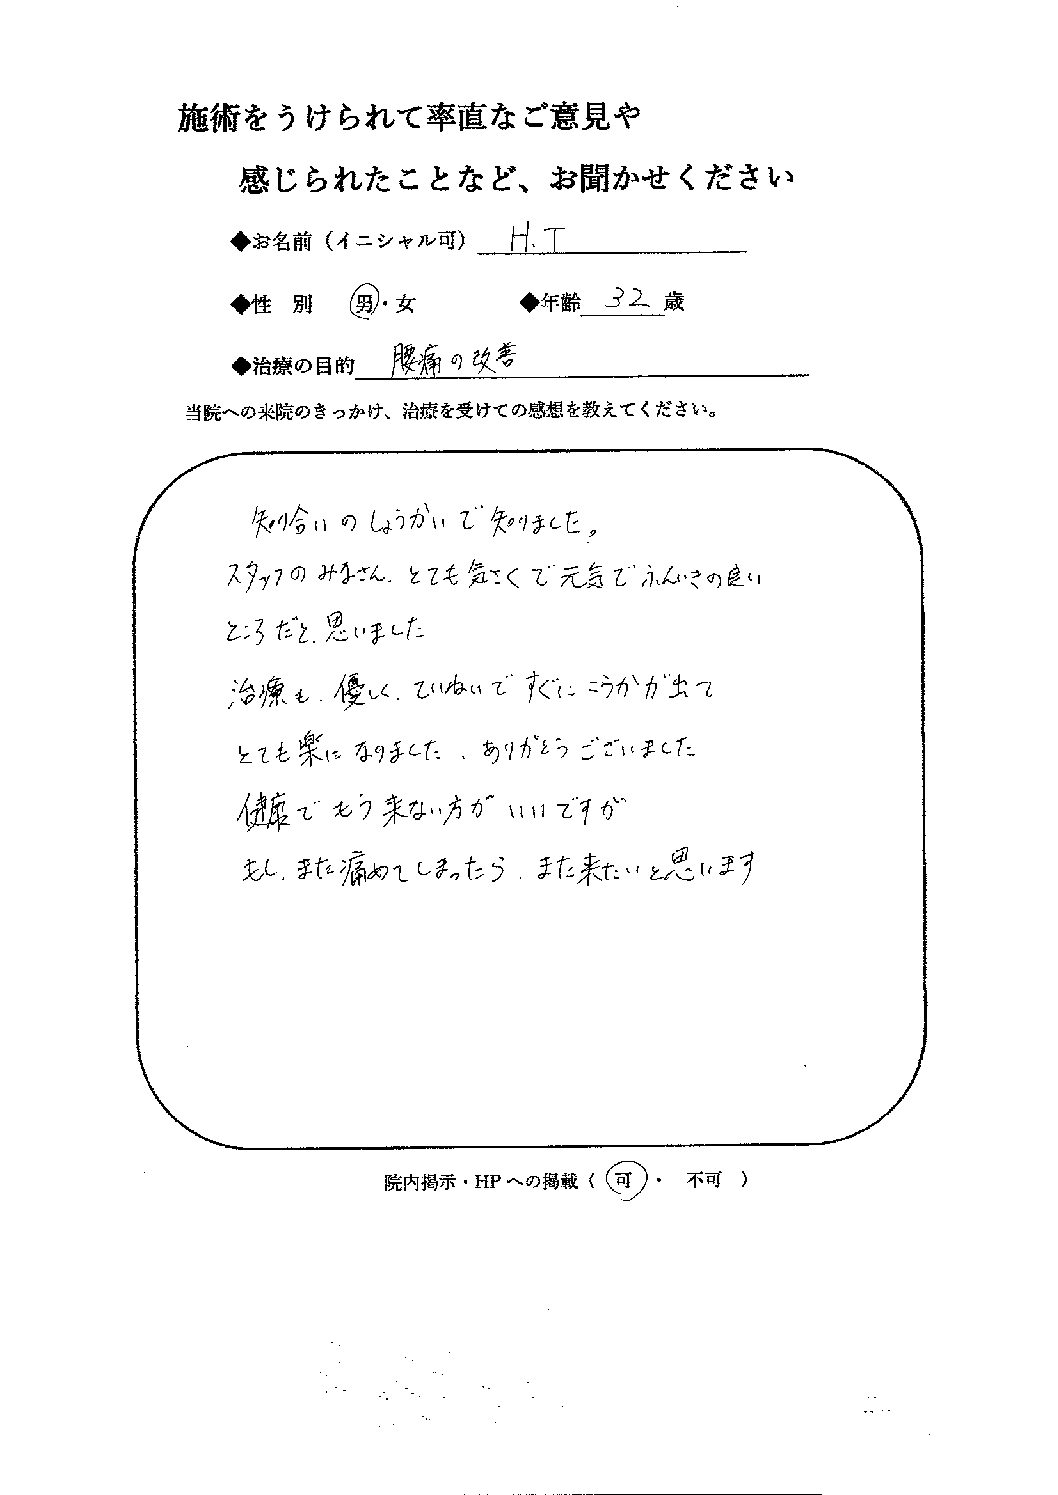 施術をうけられて率直なご意見や
感じられたことなど、お聞かせください
◆お名前（イニシャル可） H.T
◆性 別 男・女 ◆年齢 32 歳
◆治療の目的 腰痛の改善
当院への来院のきっかけ、治療を受けての感想を教えてください。
知り合いのしょうかいで知りました。
スタッフのみなさん、とても気さくで元気でふんいきの良い
ところだと、思いました
治療も、優しく、ていねいですぐにこうかが出て
とても楽になりました、ありがとうございました
健康でもう来ない方がいいですが
もし、また痛めてしまったら、また来たいと思います
院内掲示・HPへの掲載（ 可 ・ 不可 ）